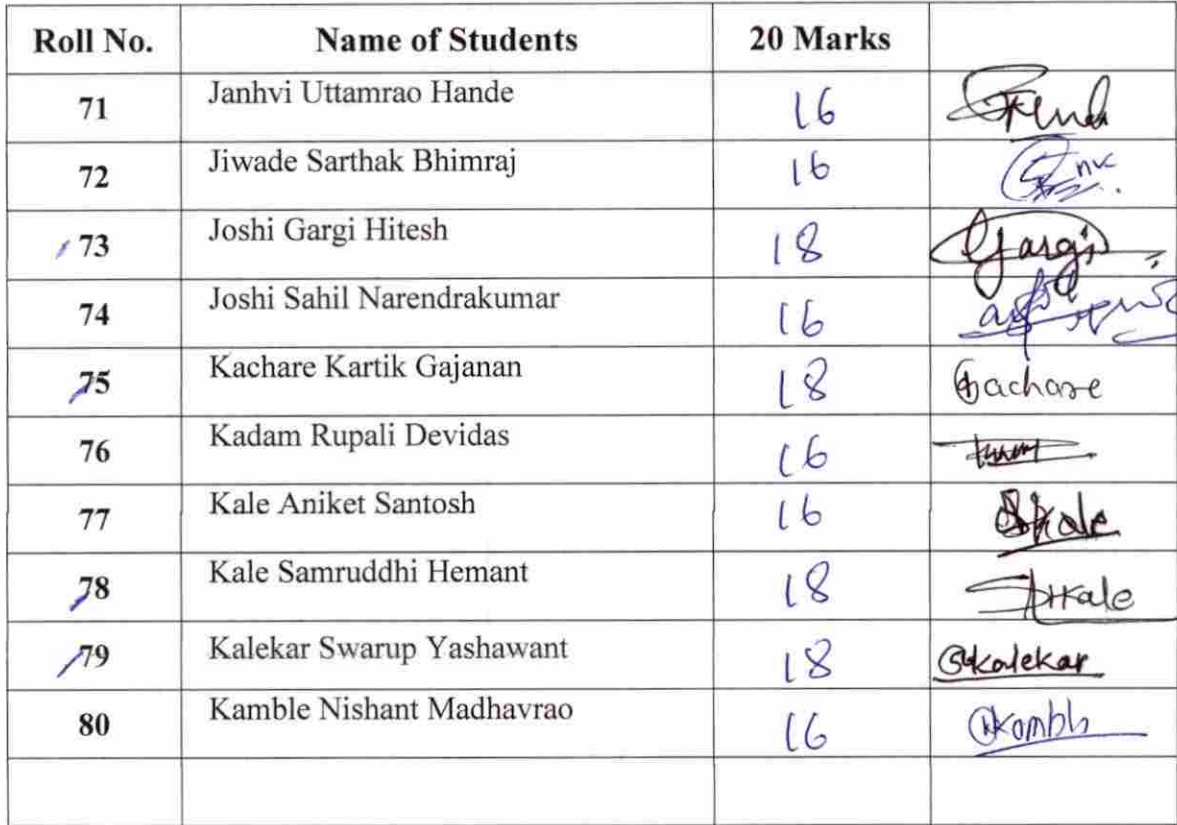 Roll No. Name of Students 20 Marks
71 Janhvi Uttamrao Hande 16
72 Jiwade Sarthak Bhimraj 16
73 Joshi Gargi Hitesh 18 Gargi
74 Joshi Sahil Narendrakumar 16
75 Kachare Kartik Gajanan 18 Kachare
76 Kadam Rupali Devidas 16
77 Kale Aniket Santosh 16
78 Kale Samruddhi Hemant 18 SHKale
79 Kalekar Swarup Yashawant 18 Sykalekar
80 Kamble Nishant Madhavrao 16